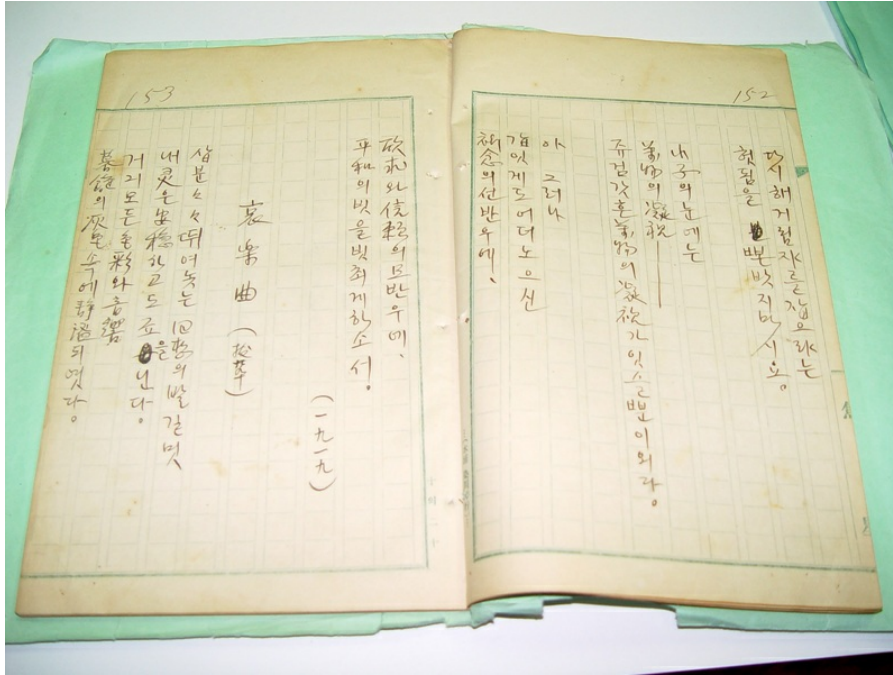 152
다시 해게 힘자루 잡으라는
헛됨을 뽄밧지 마시요。
내 주의 눈에는
萬物의 凝視——
쥬검갓흔 萬物의 凝視가 잇슬뿐이외다。
아 그러나
갑잇게도 어더노으신
槪念의 선반우에、
153
欣求와 信賴의 모반우에、
平和의 빗을 빗최게하소서。
(一九一九)
哀樂曲 (挽葬)
삽분々々 뛰여놋는 回想의 발길멋
내 灵은 安穩하고도 죠을닌다。
거긔 모든 色彩와 音響
暮鐘의 灰色 속에 靜謐되엿다。